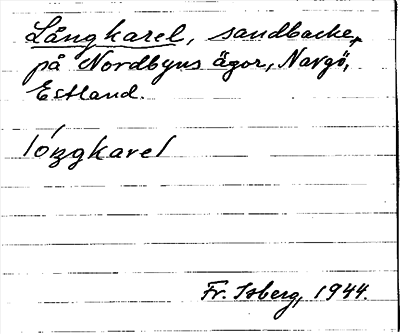 Långkarel, sandbacke,
på Nordbyns ägor, Nargö,
Estland.
lóŋgkarel
Fr. Isberg, 1944.